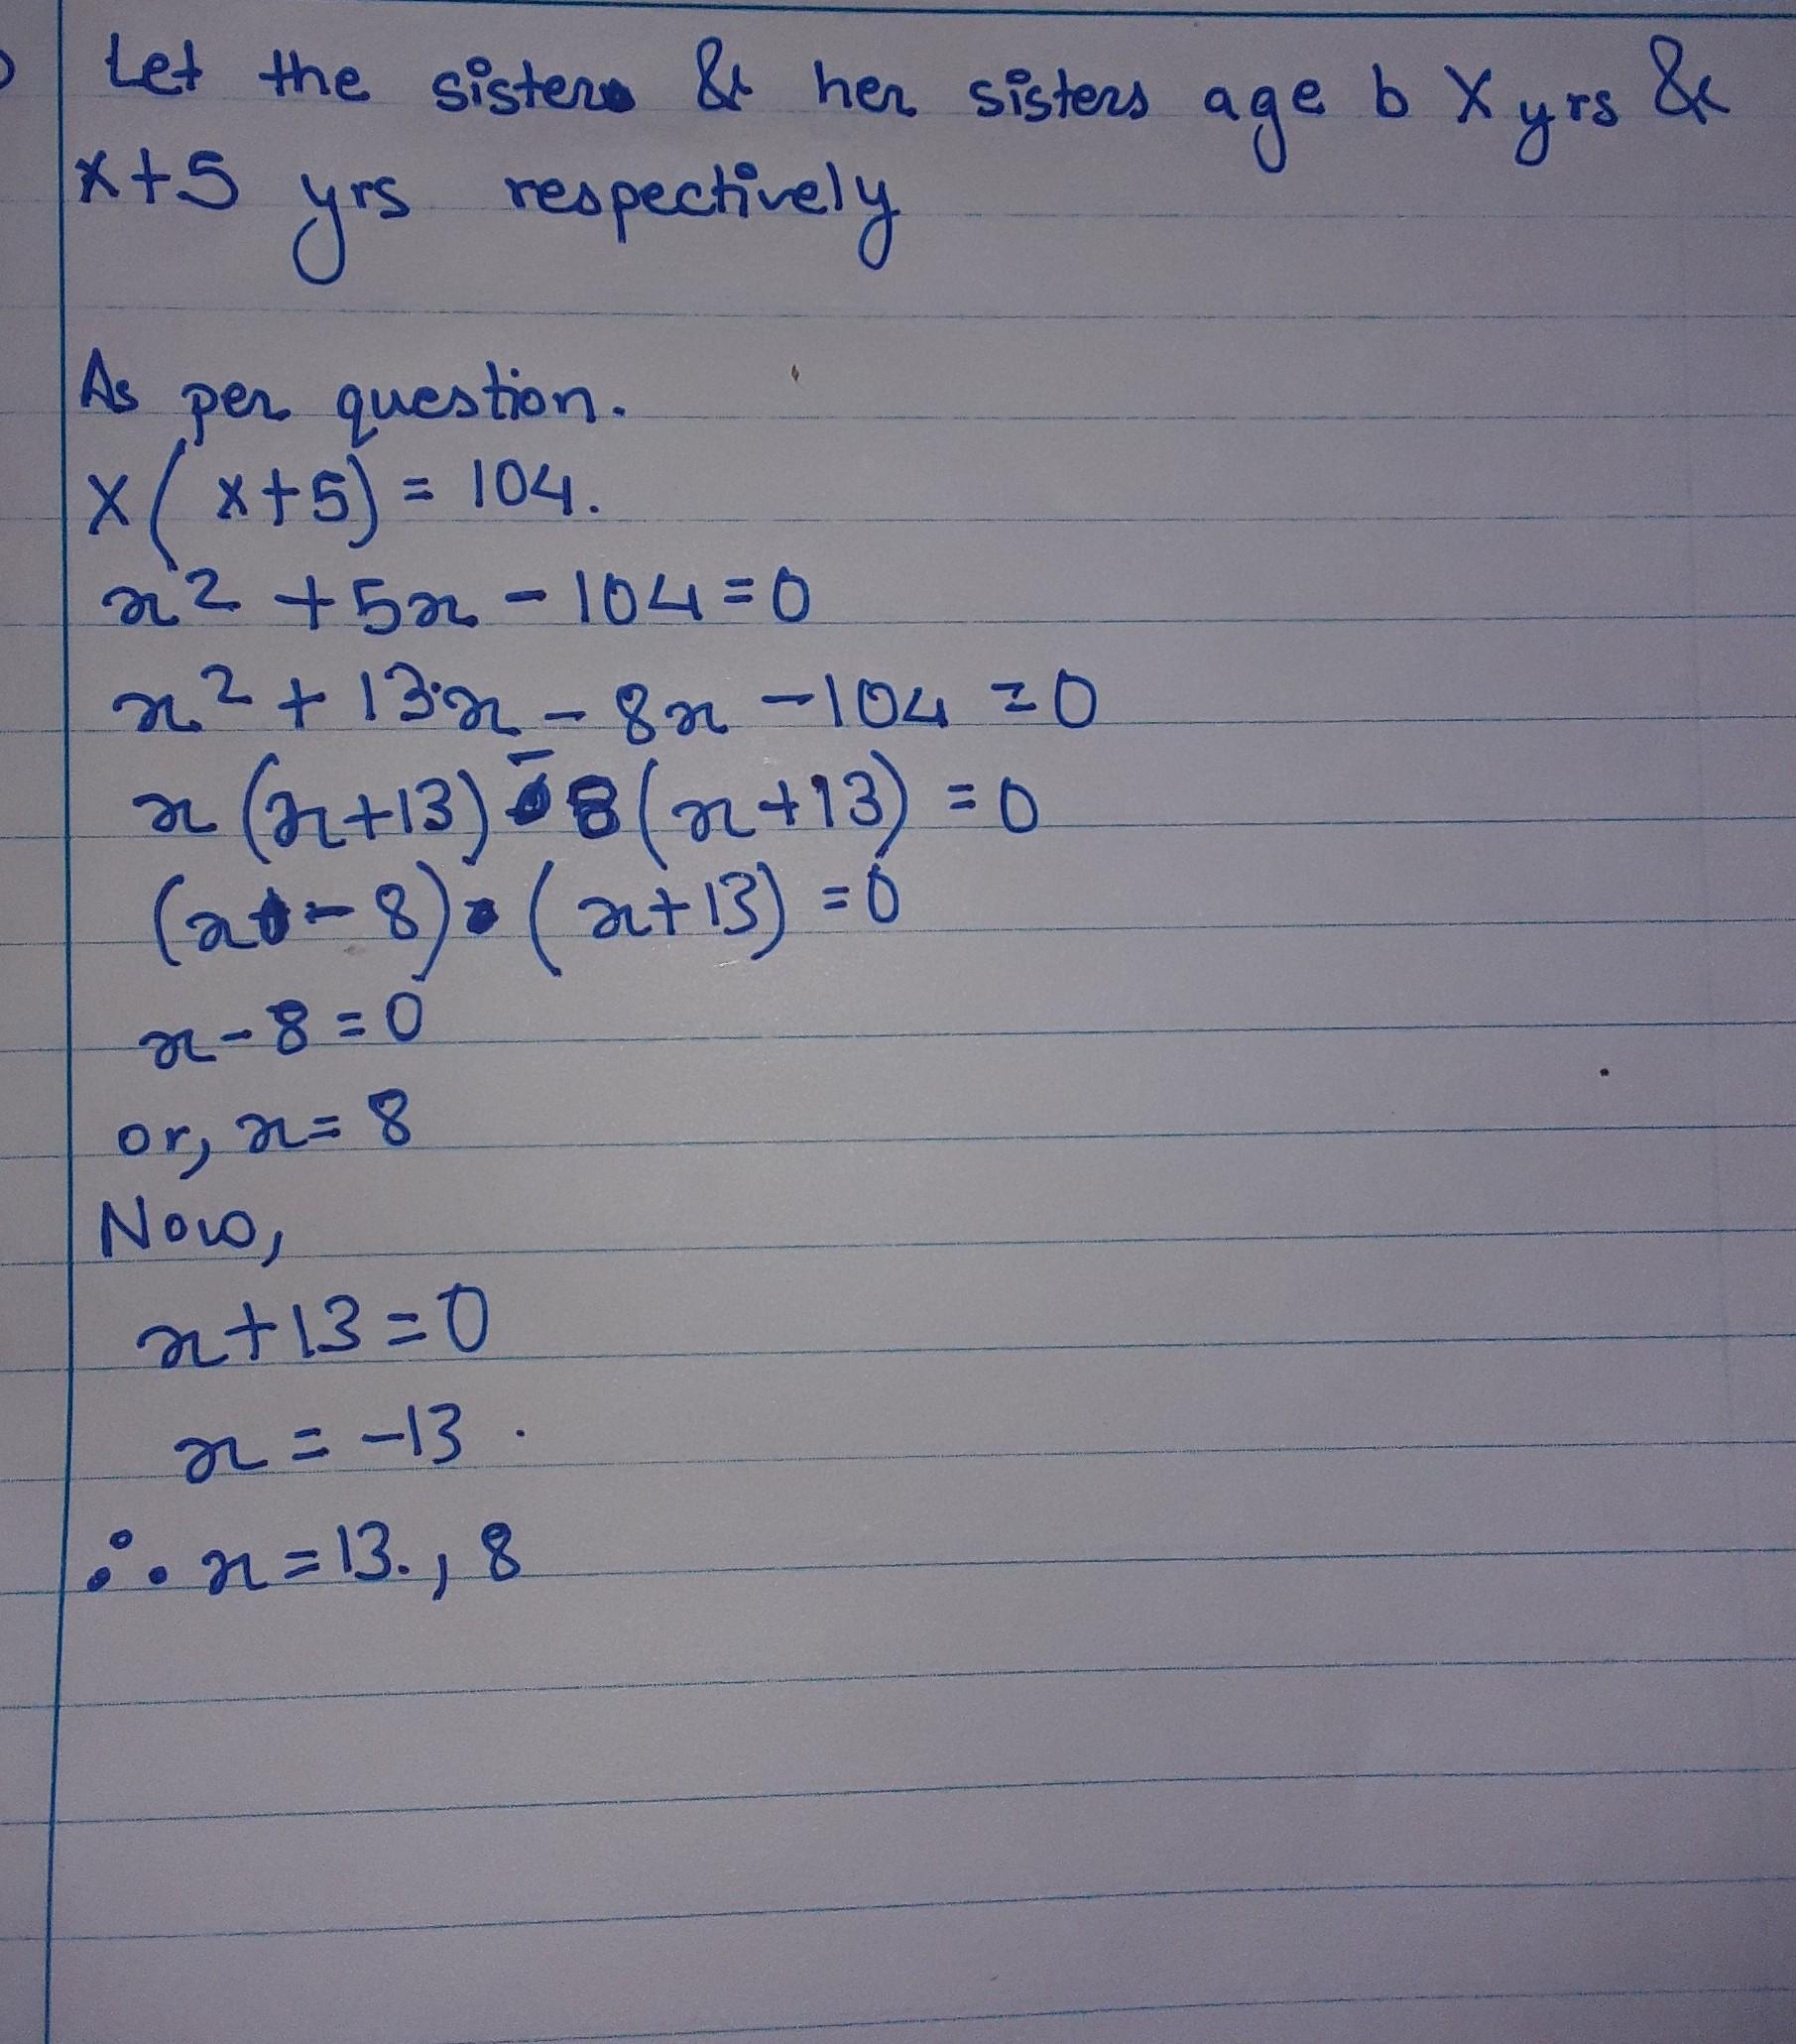 Let the sister & her sisters age b x yrs &
x+5 yrs respectively
As per question.
x(x+5) = 104.
x² + 5x - 104 = 0
x² + 13x - 8x - 104 = 0
x(x+13) - 8(x+13) = 0
(x - 8) (x+13) = 0
x - 8 = 0
or, x = 8
Now,
x + 13 = 0
x = -13.
∴ x = 13., 8